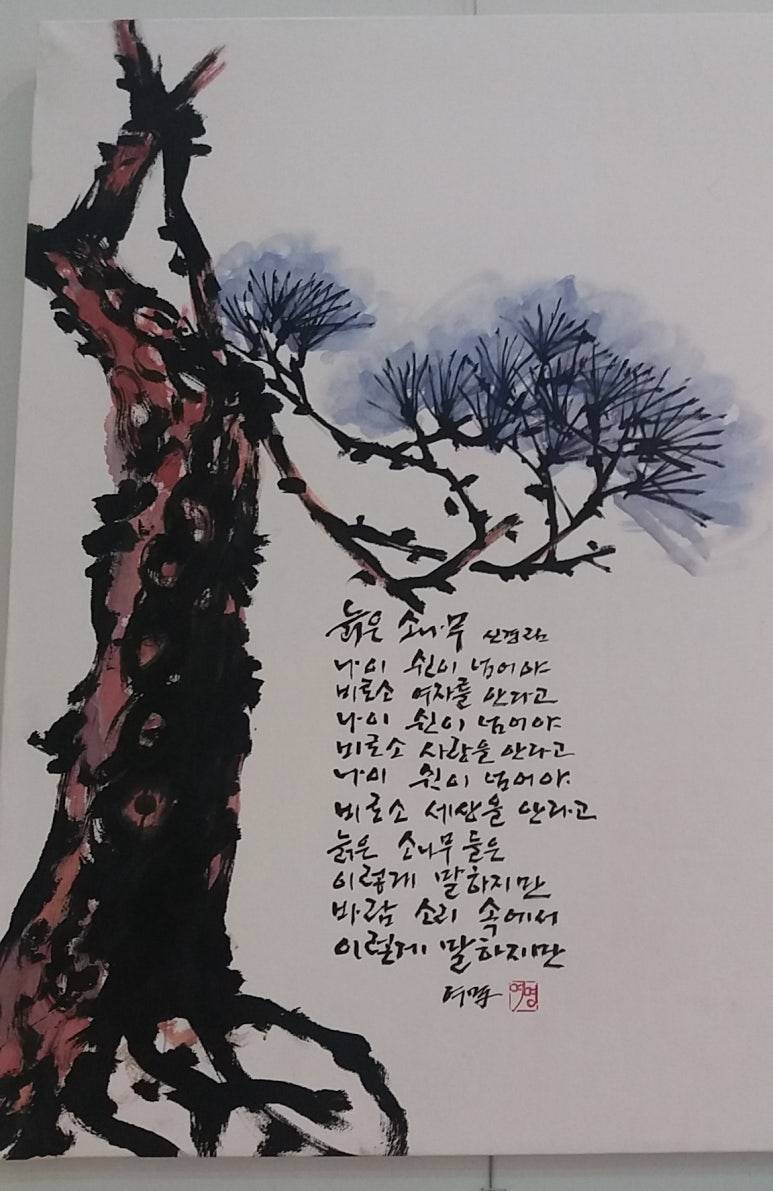 늙은 소나무 신경림
나이 쉰이 넘어야
비로소 여자를 안다고
나이 쉰이 넘어야
비로소 사랑을 안다고
나이 쉰이 넘어야
비로소 세상을 안다고
늙은 소나무들은
이렇게 말하지만
바람 소리 속에서
이렇게 말하지만
여명